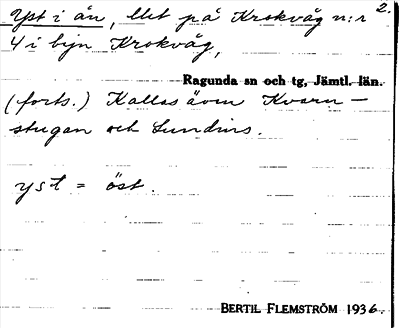 2.
Yst i ån, lht på Krokvåg n:r
4 i byn Krokvåg,
Ragunda sn och tg, Jämtl. län.
(forts.) Kallas även Kvarn-
stugan och Lundins.
yst = öst.
BERTIL FLEMSTRÖM 1936.